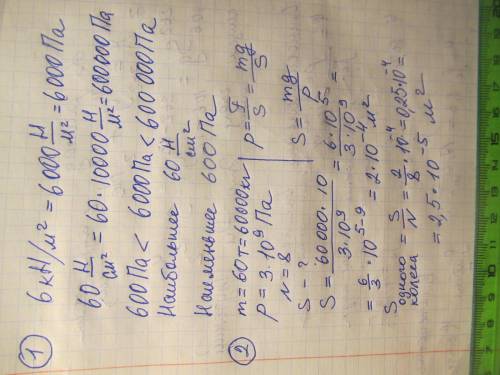 ① 6кН/м² = 6000 Н/м² = 6000 Па
60 Н/см² = 60·10000 Н/м² = 600000 Па
600 Па < 6000 Па < 600 000 Па
Наибольшее 60 Н/см²
Наименьшее 600 Па
② m = 60т = 60000кг
P = 3·10⁹ Па
N = 8
S - ?
P = F/S = mg/S
S = mg/P
S = 60000·10/3·10⁹ = 6·10⁵/3·10⁹ =
= 6/3·10⁵⁻⁹ = 2·10⁻⁴ м²
S одного колеса = S/N = 2/8·10⁻⁴ = 0,25·10⁻⁴ =
= 2,5·10⁻⁵ м²